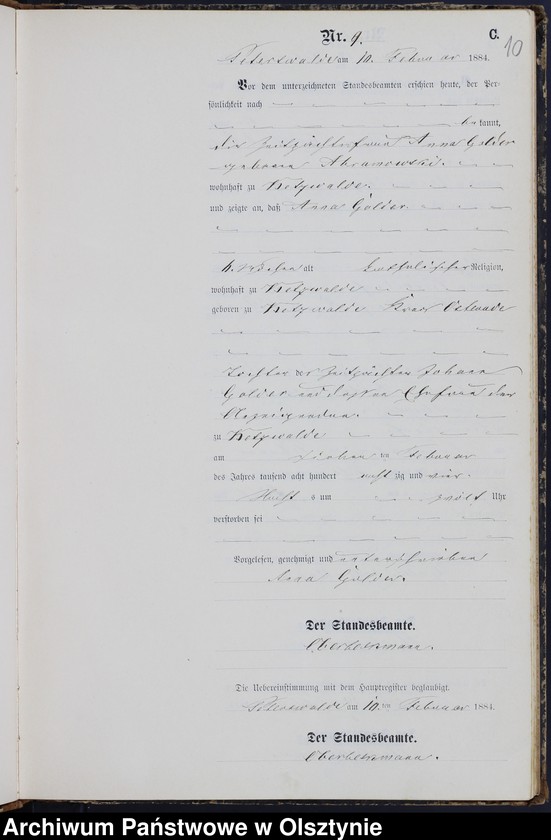 Nr. 9. C.
10
Peterswalde am 10. Februar 1884.
Vor dem unterzeichneten Standesbeamten erschien heute, der Per-
sönlichkeit nach
bekannt,
die Zeitpächterfrau Anna Golder
geborene Abramowski.
wohnhaft zu Hetzwalde.
und zeigte an, daß Anna Golder.
6 Wochen alt katholischer Religion,
wohnhaft zu Hetzwalde
geboren zu Hetzwalde Kreis Osterode
Tochter des Zeitpächter Johann
Golder und dessen Ehefrau der
Anzeigenden.
zu Hetzwalde
am sieben ten Februar
des Jahres tausend acht hundert acht zig und vier
Nachts um zwölf Uhr
verstorben sei
Vorgelesen, genehmigt und unterschrieben
Anna Golder.
Der Standesbeamte.
Die Uebereinstimmung mit dem Hauptregister beglaubigt.
Peterswalde am 10. ten Februar 1884.
Der Standesbeamte.
Archiwum Państwowe w Olsztynie